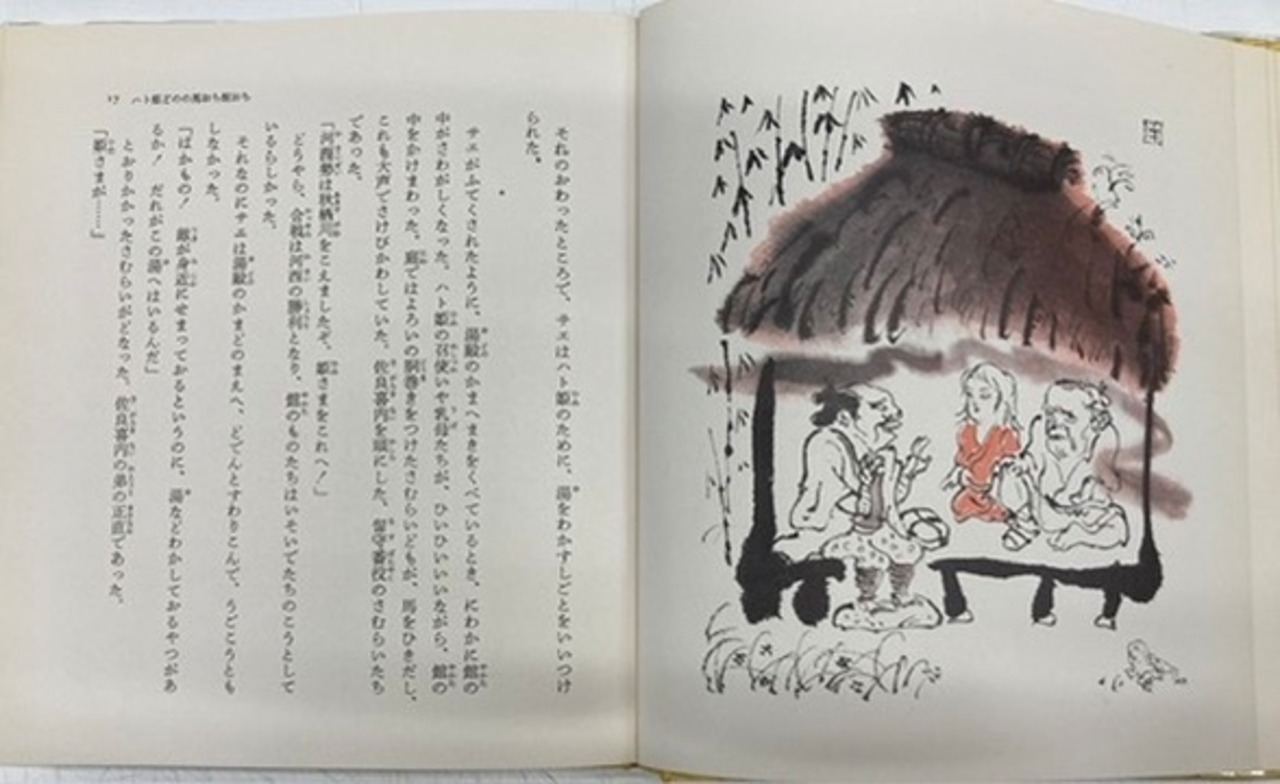 17 ハト姫どのの馬おち姫おち
それのおわったところで、サエはハト姫のために、湯をわかすしごとをいいつけ
られた。
サエがふてくされたように、湯殿のかまへまきをくべているとき、にわかに館の
中がさわがしくなった。ハト姫の召使いや乳母たちが、ひいひいいいながら、館の
中をかけまわった。庭ではよろいの胴巻きをつけたさむらいどもが、馬をひきだし、
これも大声でさけびかわしていた。佐良喜内を頭にした、留守番役のさむらいたち
であった。
「河西勢は扶栖川をこえましたぞ。姫さまをこれへ！」
どうやら、合戦は河西の勝利となり、館のものたちはいそいでたちのこうとして
いるらしかった。
それなのにサエは湯殿のかまどのまえへ、どでんとすわりこんで、うごこうとも
しなかった。
「ばかもの！　敵が身近にせまっておるというのに、湯などわかしておるやつがあ
るか！　だれがこの湯へはいるんだ」
とおりかかったさむらいがどなった。佐良喜内の弟の正直であった。
「姫さまが……」